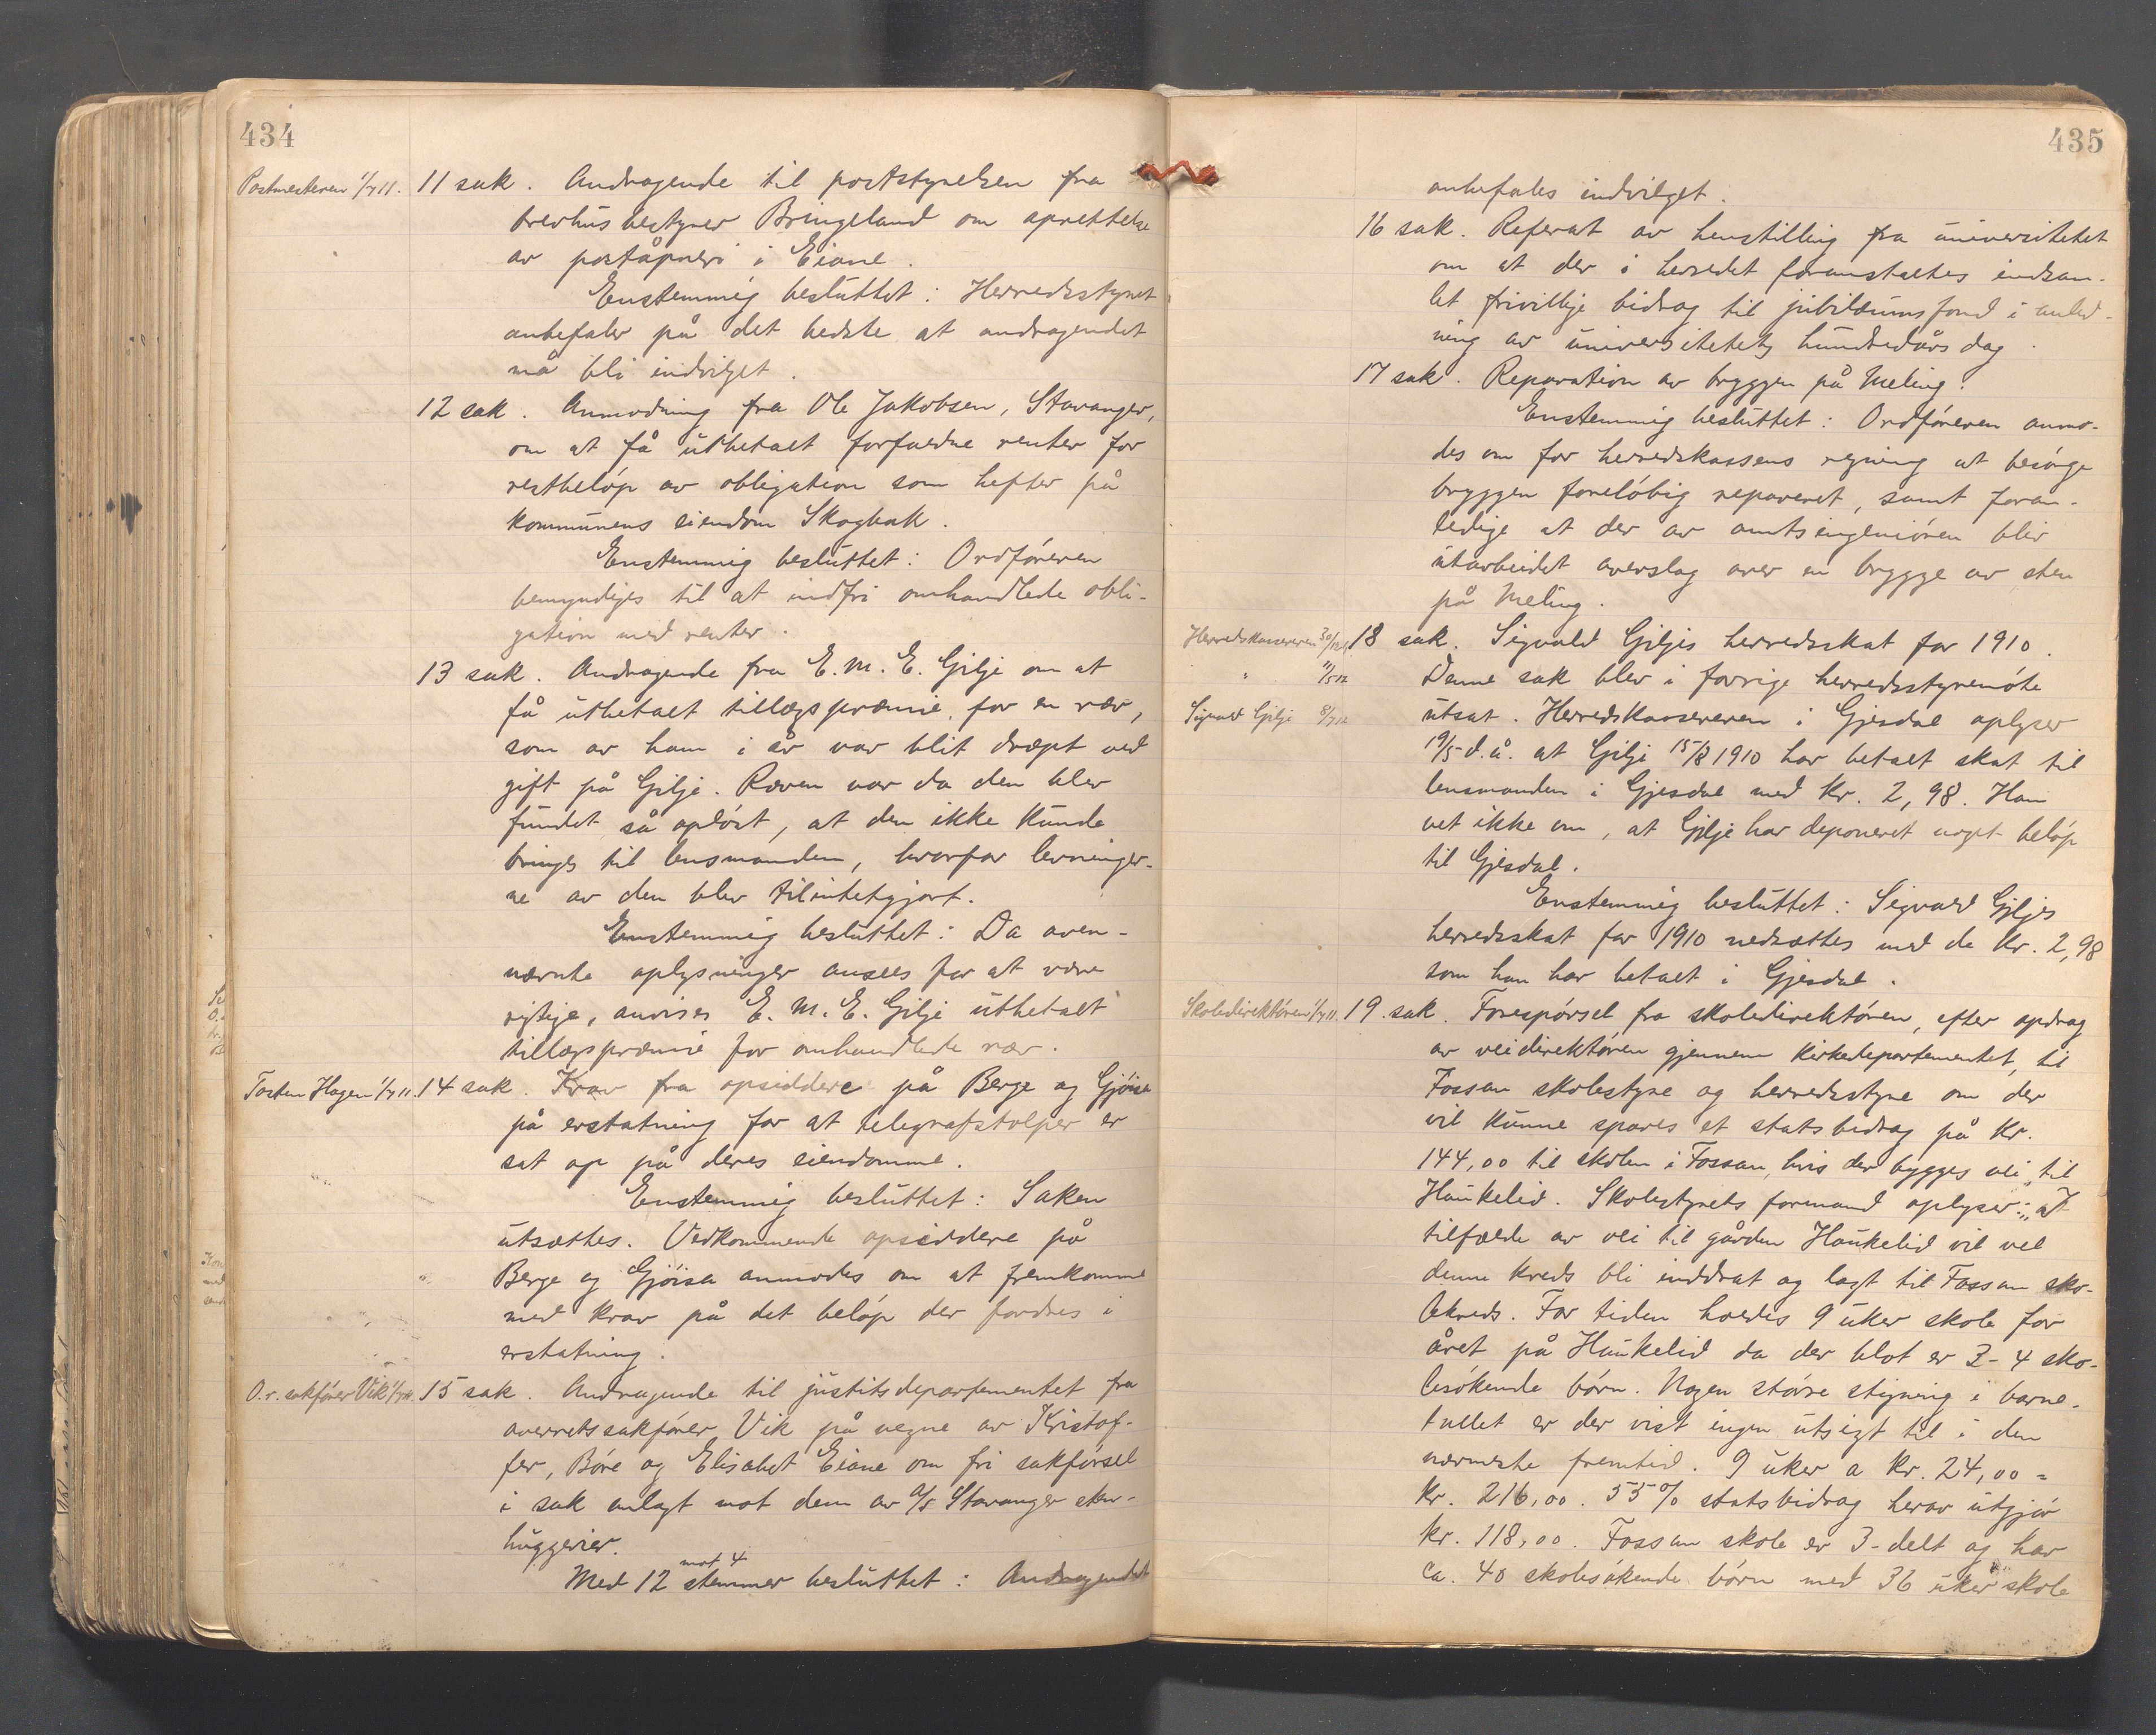 434
Postmesteren 1/7 11. 11 sak. Andragende til poststyrelsen fra
brevhusbestyrer Bringeland om oprettelse
av poståpneri i Eiane.
Enstemmig besluttet: Herredsstyret
anbefaler på det bedste at andragendet
må bli indvilget.
12 sak. Anmodning fra Ole Jakobsen, Stavanger,
om at få utbetalt forfaldne renter for
restbeløp av obligation som hefter på
kommunens eiendom Skogbak.
Enstemmig besluttet: Ordføreren
bemyndiges til at indfri omhandlede obli-
gation med renter.
13 sak. Andragende fra E. M. E. Gilje om at
få utbetalt tillægspræmie for en ræv,
som av ham i år var blit dræpt ved
gift på Gilje. Ræven var da den blev
fundet så opløst, at den ikke kunde
bringes til lensmanden, hvorfor levninger-
ne av den blev tilintetgjort.
Enstemmig besluttet: Da oven-
nævnte oplysninger ansees for at være
rigtige, anvises E. M. E. Gilje utbetalt
tillægspræmie for omhandlede ræv.
Tosten Hagen 1/7 11. 14 sak. Krav fra opsiddere på Berge og Gjøise
på erstatning for at telegrafstolper er
sat op på deres eiendomme.
Enstemmig besluttet: Saken
utsættes. Vedkommende opsiddere på
Berge og Gjøise anmodes om at fremkomme
med krav på det beløp der fordres i
erstatning.
O.r. sakfører Vik 1/7 11. 15 sak. Andragende til justitsdepartementet fra
overretssakfører Vik på vegne av Kristof-
fer, Børe og Elisabet Eiane om fri sakførsel
i sak anlagt mot dem av A/S Stavanger sten-
huggerier.
Med 12 mot 4 stemmer besluttet: Andragendet
435
anbefales indvilget.
16 sak. Referat av henstilling fra universitetet
om at der i herredet foranstaltes indsam-
let frivillige bidrag til jubilæumsfond i anled-
ning av universitetets hundredårsdag.
17 sak. Reparation av bryggen på Meling.
Enstemmig besluttet: Ordføreren anmo-
des om for herredskassens regning at besørge
bryggen foreløbig reparert, samt foran-
ledige at der av amtsingeniøren blir
utarbeidet overslag over en brygge av sten
på Meling.
Herredskassereren 18 sak. Sigvald Giljes herredsskat for 1910.
" 11/5 12 Denne sak blev i forrige herredsstyremøte
Sigvald Gilje 8/7 12 utsat. Herredskassereren i Gjesdal oplyser
19/5 d.å. at Gilje 15/8 1910 har betalt skat til
lensmanden i Gjesdal med kr. 2,98. Han
vet ikke om, at Gilje har deponeret noget beløp
til Gjesdal.
Enstemmig besluttet: Sigvald Giljes
herredsskat for 1910 nedsættes med de kr. 2,98
som han har betalt i Gjesdal.
Skoledirektøren 1/7 11. 19. sak. Forespørsel fra skoledirektøren, efter opdrag
av veidirektøren gjennem kirkedepartementet, til
Fossan skolestyre og herredsstyre om der
vil kunne spares et statsbidrag på kr.
144,00 til skolen i Fossan, hvis der bygges vei til
Haukelid. Skolestyrets formand oplyser: "I
tilfælde av vei til gården Haukelid vil vel
denne kreds bli inddrat og lagt til Fossan sko-
lekreds. For tiden holdes 9 uker skole for
året på Haukelid da der blot er 3-4 sko-
lesøkende børn. Nogen større stigning i barne-
tallet er der vist ingen utsigt til i den
nærmeste fremtid. 9 uker a kr. 24,00 =
kr. 216,00. 55% statsbidrag herav utgjør
kr. 118,00. Fossan skole er 3-delt og har
ca. 40 skolesøkende børn med 36 uker skole